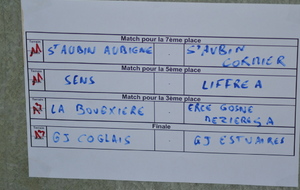 Match pour la 7ème place
St AUBIN AUBIGNE - St AUBIN CORMIER
Match pour la 5ème place
SENS - LIFFRE A
Match pour la 3ème place
LA BOUEXIERE - ERCE GOSNE MEZIERES A
Finale
GJ COGLAIS - GJ ESTUAIRES